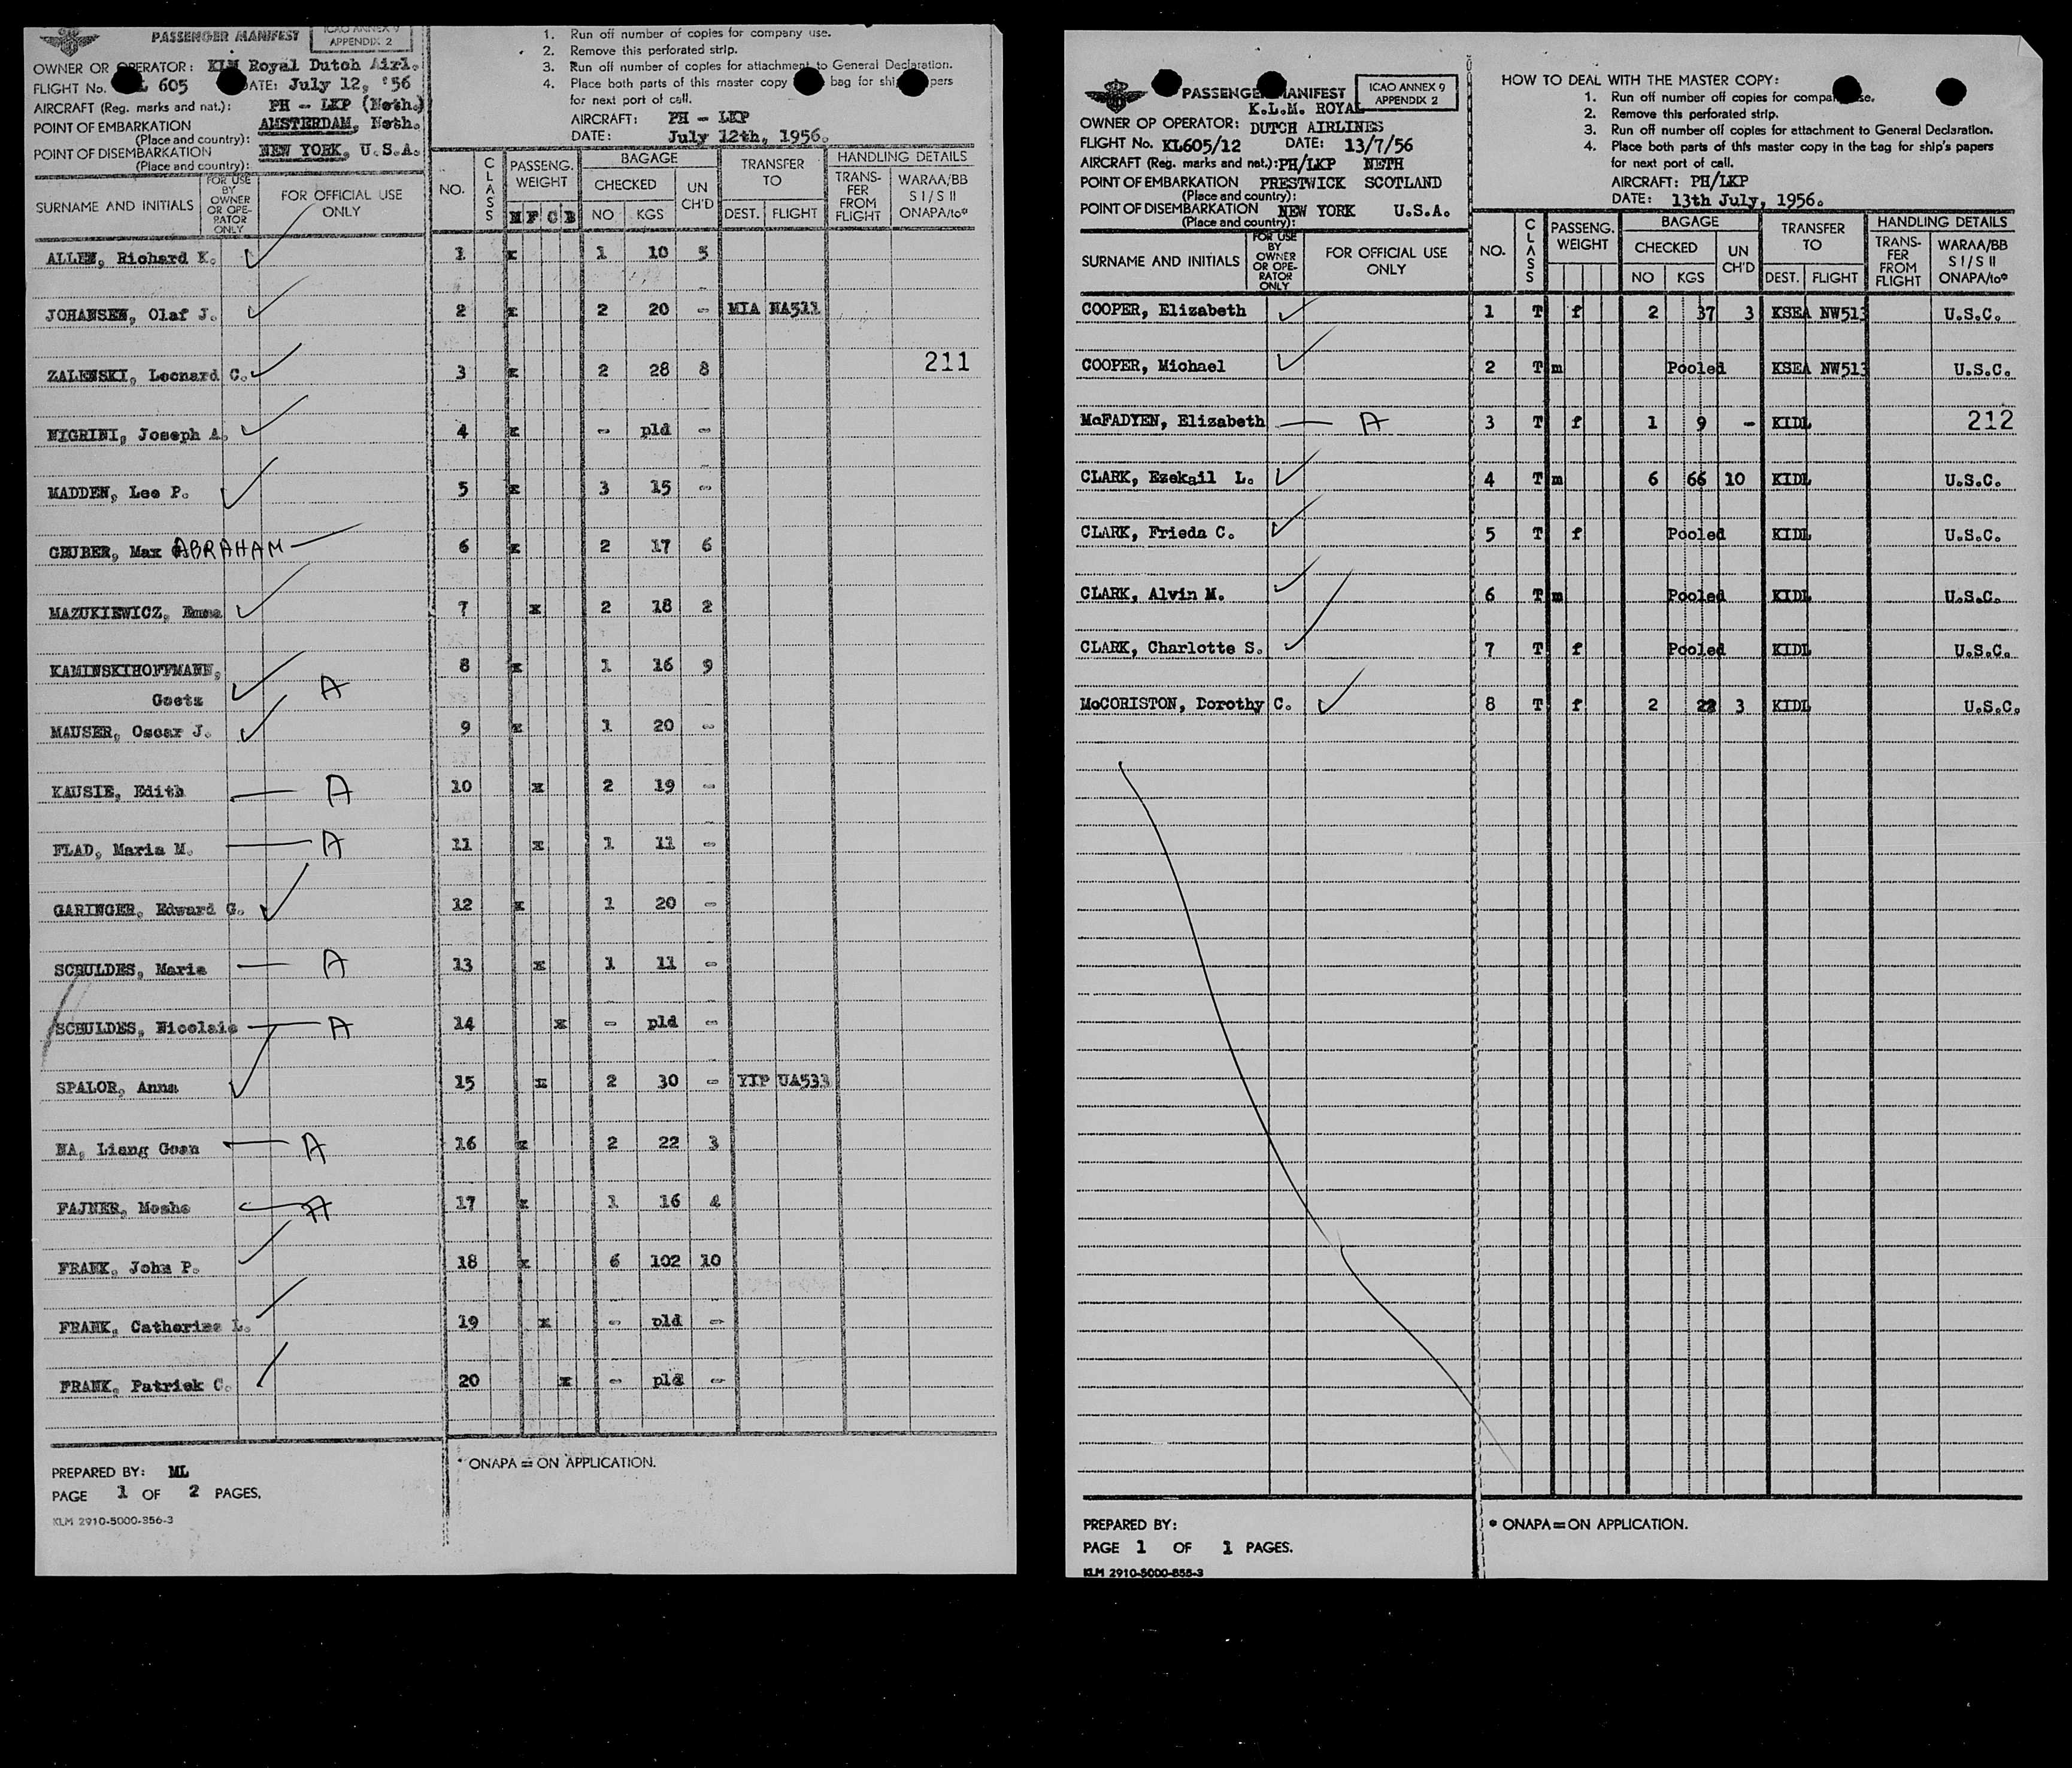 PASSENGER MANIFEST
ICAO ANNEX 9
APPENDIX 2
OWNER OR OPERATOR: KLM Royal Dutch Airl.
FLIGHT No. 605 DATE: July 12, '56
AIRCRAFT (Reg. marks and nat.): PH - LKP (Neth.)
POINT OF EMBARKATION AMSTERDAM, Neth.
(Place and country):
POINT OF DISEMBARKATION NEW YORK, U.S.A.
(Place and country):
1. Run off number of copies for company use.
2. Remove this perforated strip.
3. Run off number of copies for attachment to General Declaration.
4. Place both parts of this master copy bag for
for next port of call.
AIRCRAFT: PH - LKP
DATE: July 12th, 1956.
SURNAME AND INITIALS
FOR USE BY OWNER OR OPERATOR ONLY
FOR OFFICIAL USE ONLY
NO. CLASS PASSENG. WEIGHT M F C B BAGAGE CHECKED NO KGS UN CH'D TRANSFER TO DEST. FLIGHT HANDLING DETAILS TRANSFER FROM FLIGHT WARAA/BB S I / S II ONAPA/to*
ALLEN, Richard K. 1 x 1 10 5
JOHANSEN, Olaf J. 2 x 2 20 - MIA NA511
ZALENSKI, Leonard C. 3 x 2 28 8 211
NIGRINI, Joseph A. 4 x - pld -
MADDEN, Leo P. 5 x 3 15 -
GRUBER, Max ABRAHAM 6 x 2 17 6
MAZUKIEWICZ, Emma 7 x 2 18 2
KAMINSKIHOFFMANN, 8 x 1 16 9
Goetz A
MAUSER, Oscar J. 9 x 1 20 -
KAUSIE, Edith A 10 x 2 19 -
FLAD, Maria M. A 11 x 1 11 -
GARINGER, Edward G. 12 x 1 20 -
SCHULDES, Maria A 13 x 1 11 -
SCHULDES, Nicolaie A 14 x - pld -
SPALOR, Anna 15 x 2 30 - YIP UA533
NA, Liang Goan A 16 x 2 22 3
FAJNER, Moshe A 17 x 1 16 4
FRANK, John P. 18 x 6 102 10
FRANK, Catherine L. 19 x - pld -
FRANK, Patrick C. 20 x - pld -
* ONAPA = ON APPLICATION.
PREPARED BY: ML
PAGE 1 OF 2 PAGES.
KLM 2910-5000-356-3
PASSENGER MANIFEST
ICAO ANNEX 9
APPENDIX 2
K.L.M. ROYAL
OWNER OP OPERATOR: DUTCH AIRLINES
FLIGHT No. KL605/12 DATE: 13/7/56
AIRCRAFT (Reg. marks and nat.): PH/LKP NETH
POINT OF EMBARKATION PRESTWICK SCOTLAND
(Place and country):
POINT OF DISEMBARKATION NEW YORK U.S.A.
(Place and country):
HOW TO DEAL WITH THE MASTER COPY:
1. Run off number off copies for company use.
2. Remove this perforated strip.
3. Run off number off copies for attachment to General Declaration.
4. Place both parts of this master copy in the bag for ship's papers
for next port of call.
AIRCRAFT: PH/LKP
DATE: 13th July, 1956.
SURNAME AND INITIALS
FOR USE BY OWNER OR OPERATOR ONLY
FOR OFFICIAL USE ONLY
NO. CLASS PASSENG. WEIGHT BAGAGE CHECKED NO KGS UN CH'D TRANSFER TO DEST. FLIGHT HANDLING DETAILS TRANSFER FROM FLIGHT WARAA/BB S I / S II ONAPA/to*
COOPER, Elizabeth 1 T f 2 37 3 KSEA NW513 U.S.C.
COOPER, Michael 2 T m Pooled KSEA NW513 U.S.C.
McFADYEN, Elizabeth A 3 T f 1 9 - KIDL 212
CLARK, Ezekail L. 4 T m 6 66 10 KIDL U.S.C.
CLARK, Frieda C. 5 T f Pooled KIDL U.S.C.
CLARK, Alvin M. 6 T m Pooled KIDL U.S.C.
CLARK, Charlotte S. 7 T f Pooled KIDL U.S.C.
McCORISTON, Dorothy C. 8 T f 2 22 3 KIDL U.S.C.
PREPARED BY:
PAGE 1 OF 1 PAGES.
KLM 2910-5000-855-3
* ONAPA = ON APPLICATION.